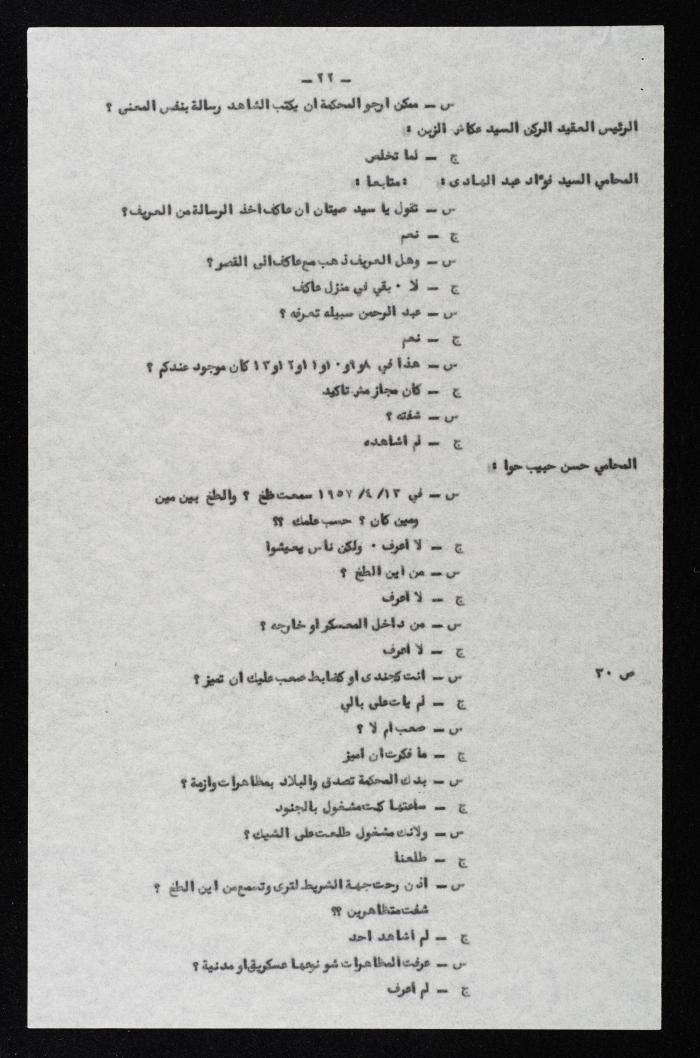 ـ ٢٢ ـ
س ـ ممكن ارجو المحكمة ان يكتب الشاهد رسالة بنفس المعنى ؟
الرئيس العقيد الركن السيد عكاش الزبن :
ج ـ لما تخلص
المحامي السيد فؤاد عبد الهادى : متابعا :
س ـ تقول يا سيد صيتان ان عاكف اخذ الرسالة من العريف؟
ج ـ نعم
س ـ وهل العريف ذهب مع عاكف الى القصر ؟
ج ـ لا ٠ بقي في منزل عاكف
س ـ عبد الرحمن سبيله تعرفه ؟
ج ـ نعم
س ـ هذا في ٨و٩و١٠و١١و١٢و١٣ كان موجود عندكم ؟
ج ـ كان مجاز مش تاكيد
س ـ شفته ؟
ج ـ لم اشاهده
المحامي حسن حبيب حوا :
س ـ في ١٣/ ٤/ ١٩٥٧ سمعت طخ ؟ والطخ بين مين
ومين كان ؟ حسب علمك ؟؟
ج ـ لا اعرف ٠ ولكن ناس يعيشوا
س ـ من اين الطخ ؟
ج ـ لا اعرف
س ـ من داخل المعسكر او خارجه ؟
ج ـ لا اعرف
ص ٣٠
س ـ انت كجندى او كضابط صعب عليك ان تميز ؟
ج ـ لم يات على بالي
س ـ صعب ام لا ؟
ج ـ ما فكرت ان اميز
س ـ بدك المحكمة تصدق والبلاد بمظاهرات وازمة ؟
ج ـ ساعتها كنت مشغول بالجنود
س ـ ولانك مشغول طلعت على الشيك ؟
ج ـ طلعنا
س ـ اذن رحت جهة الشريط لترى وتسمع من اين الطخ ؟
شفت متظاهرين ؟؟
ج ـ لم اشاهد احد
س ـ عرفت المظاهرات شو نوعها عسكرية او مدنية ؟
ج ـ لم اعرف